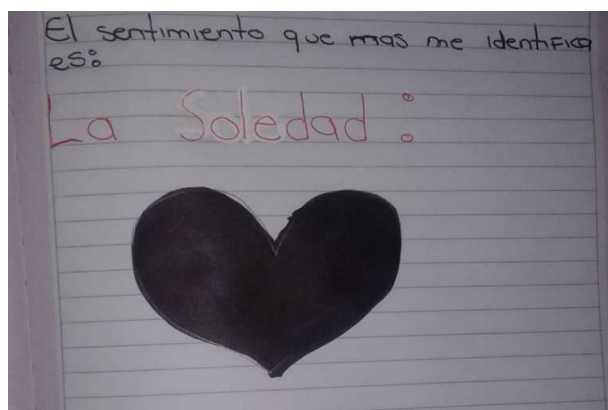 El sentimiento que mas me identifica
es:
La Soledad :